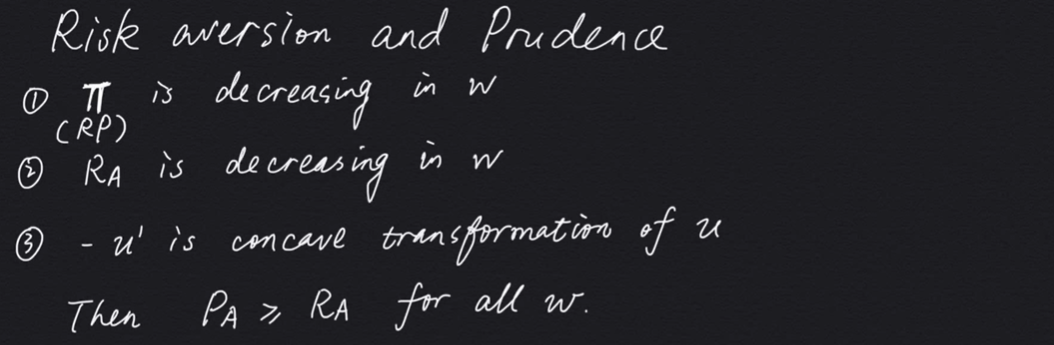 Risk aversion and Prudence
① π is decreasing in w
(RP)
② RA is decreasing in w
③ - u' is concave transformation of u
Then PA ⩾ RA for all w.